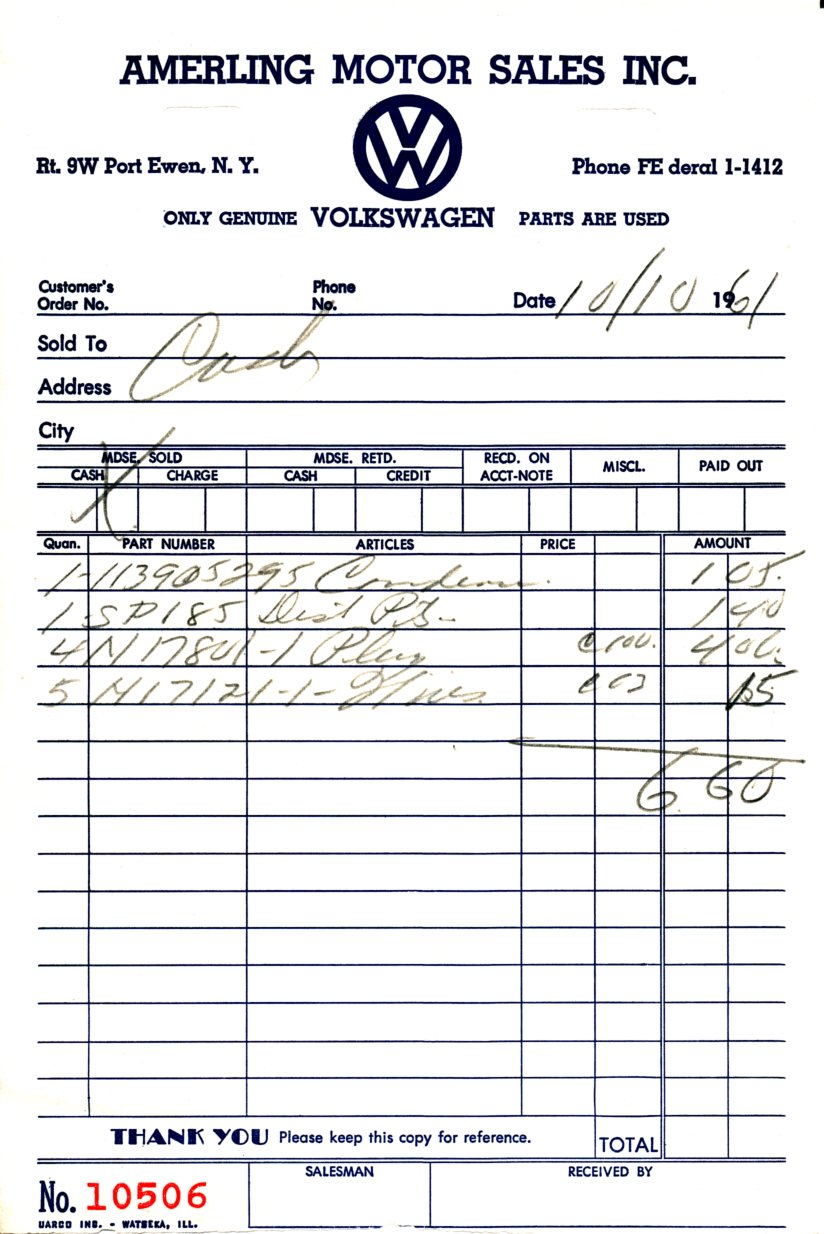 AMERLING MOTOR SALES INC.
Rt. 9W Port Ewen, N. Y.
VW
Phone FE deral 1-1412
ONLY GENUINE VOLKSWAGEN PARTS ARE USED
Customer's Order No. Phone No. Date 10/10 1961
Sold To Cash
Address
City
MDSE. SOLD MDSE. RETD. RECD. ON ACCT-NOTE MISCL. PAID OUT
CASH CHARGE CASH CREDIT
X
Quan. PART NUMBER ARTICLES PRICE AMOUNT
1-113905295 Condenser 1 05
1-SP185 Dist Pts 1 40
4 N17801-1 Plug @ 1 00 4 00
5 N17121-1- @ 03 15
6 60
THANK YOU Please keep this copy for reference. TOTAL
No. 10506 SALESMAN RECEIVED BY
UARCO INC. - WATSEKA, ILL.